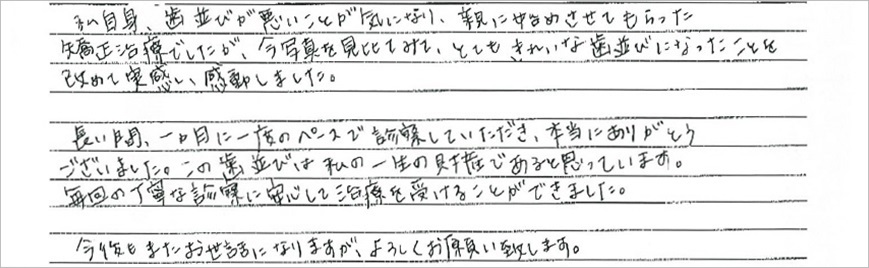 私自身、歯並びが悪いことが気になり、親に始めさせてもらった
矯正治療でしたが、今写真を見比てみて、とてもきれいな歯並びになったことを
改めて実感し、感動しました。
長い間、一か月に一度のペースで診察していただき、本当にありがとう
ございました。この歯並びは私の一生の財産であると思っています。
毎回の丁寧な診察に安心して治療を受けることができました。
今後もまたお世話になりますが、よろしくお願い致します。